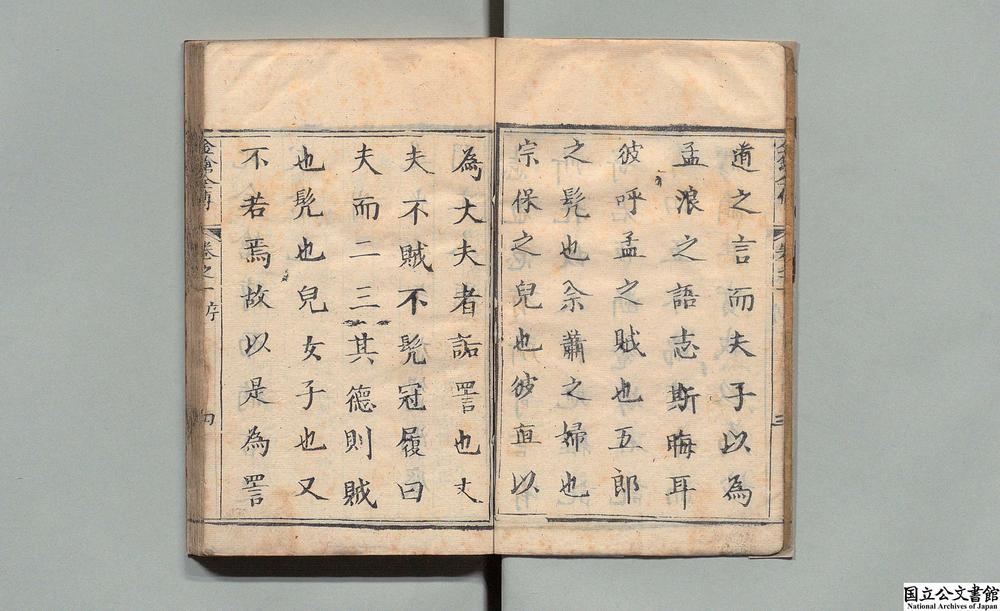 道之言而夫子以為
孟浪之語志斯晦耳
彼呼孟之賊也五郎
之髡也佘蕭之婦也
宗保之兒也彼直以
為大夫者詬詈也丈
夫不賊不髡冠履曰
夫而二三其德則賊
也髡也兒女子也又
不若焉故以是為詈
卷之一
序
国立公文書館
National Archives of Japan